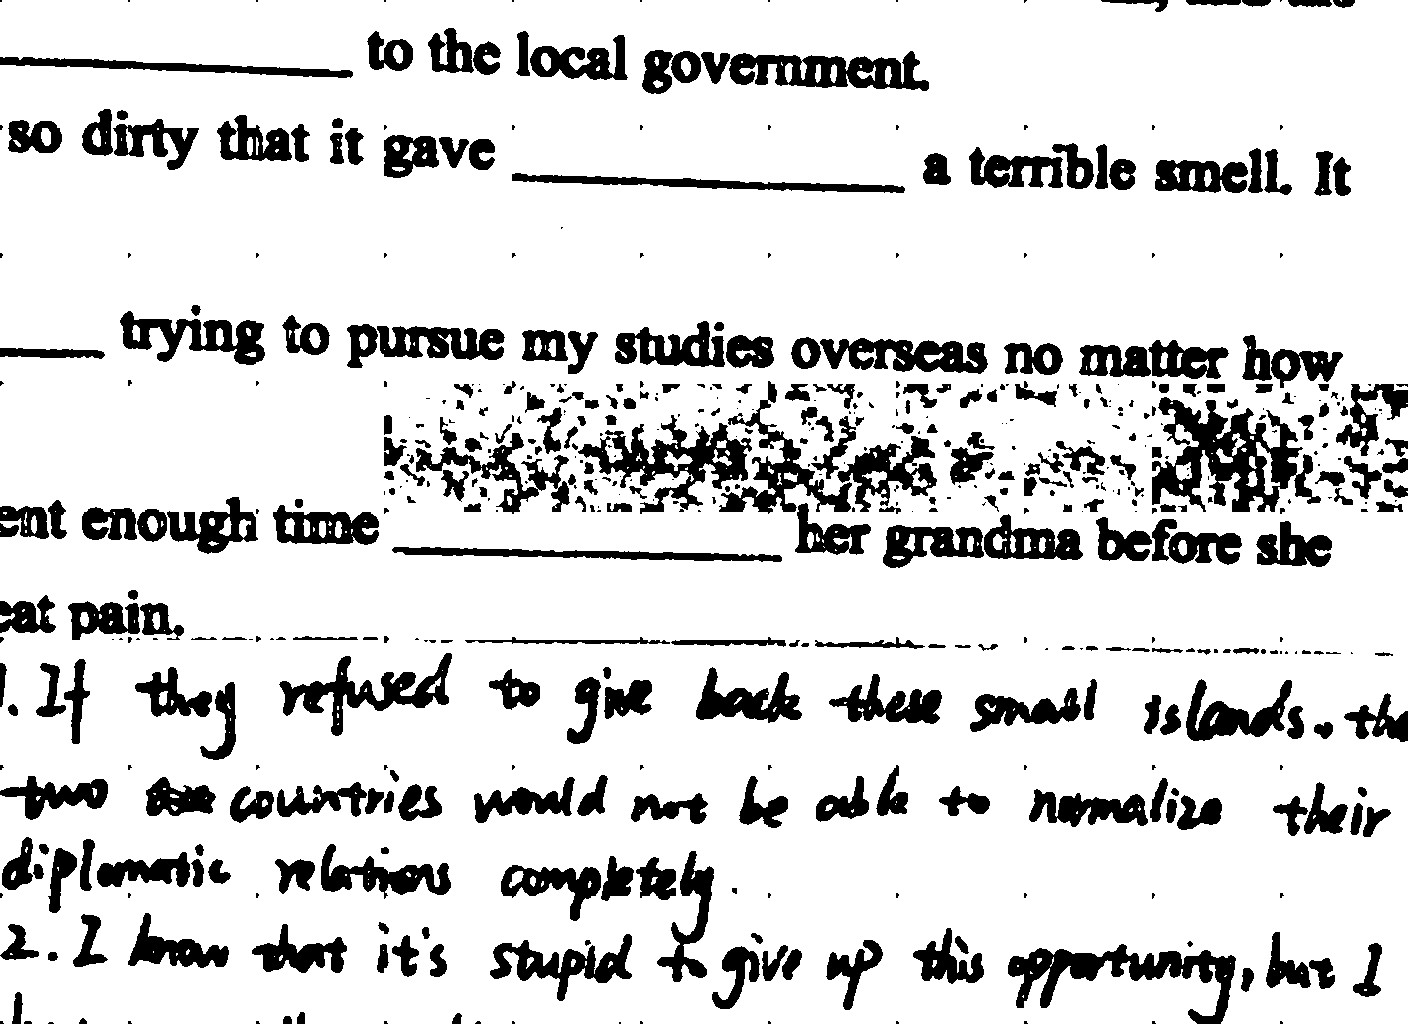 to the local government.
so dirty that it gave a terrible smell. It
trying to pursue my studies overseas no matter how
ent enough time her grandma before she
eat pain.
1. If they refused to give back these small islands. the
two countries would not be able to normalize their
diplomatic relations completely.
2. I know that it's stupid to give up this opportunity, but I